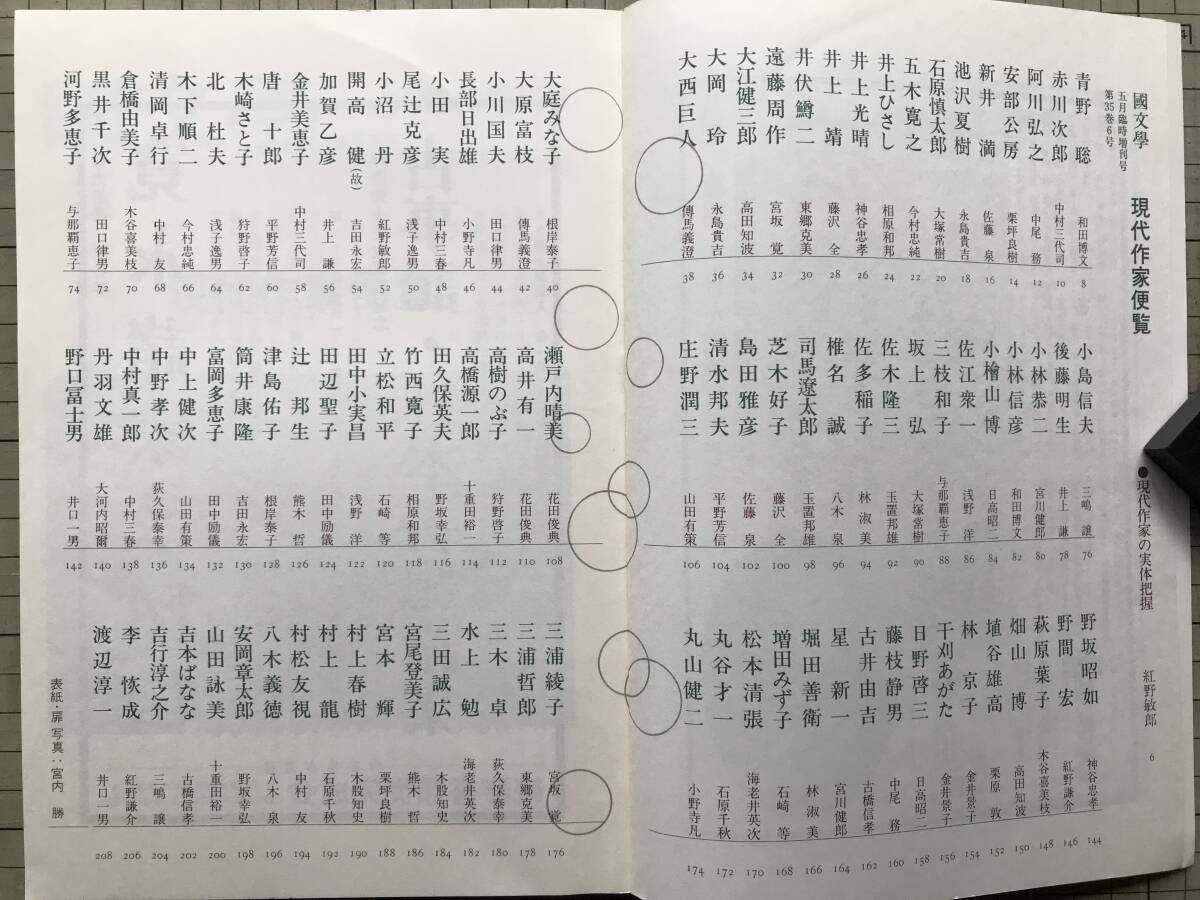 國文學
五月臨時増刊号
第35巻6号
現代作家便覧
●現代作家の実体把握 紅野敏郎 6
青野 聡 和田博文 8
赤川次郎 中村三代司 10
阿川弘之 中尾 務 12
安部公房 栗坪良樹 14
新井 満 佐藤 泉 16
池沢夏樹 永島貴吉 18
石原慎太郎 大塚常樹 20
五木寛之 今村忠純 22
井上ひさし 相原和邦 24
井上光晴 神谷忠孝 26
井上 靖 藤沢 全 28
井伏鱒二 東郷克美 30
遠藤周作 宮坂 覚 32
大江健三郎 高田知波 34
大岡 玲 永島貴吉 36
大西巨人 傳馬義澄 38
大庭みな子 根岸泰子 40
大原富枝 傳馬義澄 42
小川国夫 田口律男 44
長部日出雄 小野寺凡 46
小田 実 中村三春 48
尾辻克彦 浅子逸男 50
小沼 丹 紅野敏郎 52
開高 健(故) 吉田永宏 54
加賀乙彦 井上 謙 56
金井美恵子 中村三代司 58
唐 十郎 平野芳信 60
木崎さと子 狩野啓子 62
北 杜夫 浅子逸男 64
木下順二 今村忠純 66
清岡卓行 中村 友 68
倉橋由美子 木谷喜美枝 70
黒井千次 田口律男 72
河野多恵子 与那覇恵子 74
小島信夫 三嶋 譲 76
後藤明生 井上 謙 78
小林恭二 宮川健郎 80
小林信彦 和田博文 82
小檜山博 日高昭二 84
佐江衆一 浅野 洋 86
三枝和子 与那覇恵子 88
坂上 弘 大塚常樹 90
佐木隆三 玉置邦雄 92
佐多稲子 林 淑美 94
椎名 誠 八木 泉 96
司馬遼太郎 玉置邦雄 98
芝木好子 藤沢 全 100
島田雅彦 佐藤 泉 102
清水邦夫 平野芳信 104
庄野潤三 山田有策 106
瀬戸内晴美 花田俊典 108
高井有一 花田俊典 110
高樹のぶ子 狩野啓子 112
高橋源一郎 十重田裕一 114
田久保英夫 野坂幸弘 116
竹西寛子 相原和邦 118
立松和平 石崎 等 120
田中小実昌 浅野 洋 122
田辺聖子 田中励儀 124
辻 邦生 熊木 哲 126
津島佑子 根岸泰子 128
筒井康隆 吉田永宏 130
富岡多恵子 田中励儀 132
中上健次 山田有策 134
中野孝次 荻久保泰幸 136
中村真一郎 中村三春 138
丹羽文雄 大河内昭爾 140
野口冨士男 井口一男 142
野坂昭如 神谷忠孝 144
野間 宏 紅野謙介 146
萩原葉子 木谷喜美枝 148
畑山 博 高田知波 150
埴谷雄高 栗原 敦 152
林 京子 金井景子 154
干刈あがた 金井景子 156
日野啓三 日高昭二 158
藤枝静男 中尾 務 160
古井由吉 古橋信孝 162
星 新一 宮川健郎 164
堀田善衛 林 淑美 166
増田みず子 石崎 等 168
松本清張 海老井英次 170
丸谷才一 石原千秋 172
丸山健二 小野寺凡 174
三浦綾子 宮坂 覚 176
三浦哲郎 東郷克美 178
三木 卓 荻久保泰幸 180
水上 勉 海老井英次 182
三田誠広 木股知史 184
宮尾登美子 熊木 哲 186
宮本 輝 栗坪良樹 188
村上春樹 木股知史 190
村上 龍 石原千秋 192
村松友視 中村 友 194
八木義徳 八木 泉 196
安岡章太郎 野坂幸弘 198
山田詠美 十重田裕一 200
吉本ばなな 古橋信孝 202
吉行淳之介 三嶋 譲 204
李 恢成 紅野謙介 206
渡辺淳一 井口一男 208
表紙・扉 写真:宮内 勝